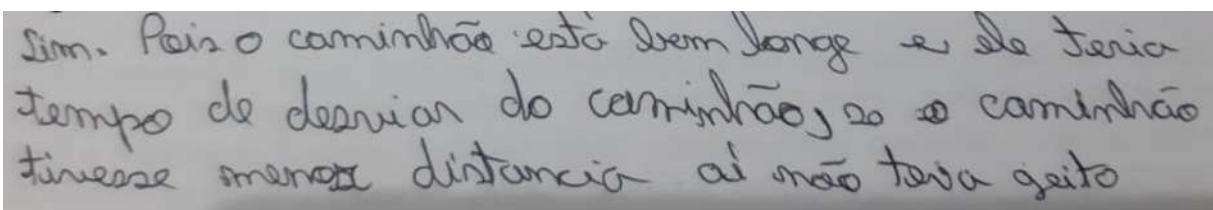 Sim. Pois o caminhão está bem longe e ele teria
tempo de desviar do caminhão, so o caminhão
tivesse menor distancia aí não teva geito